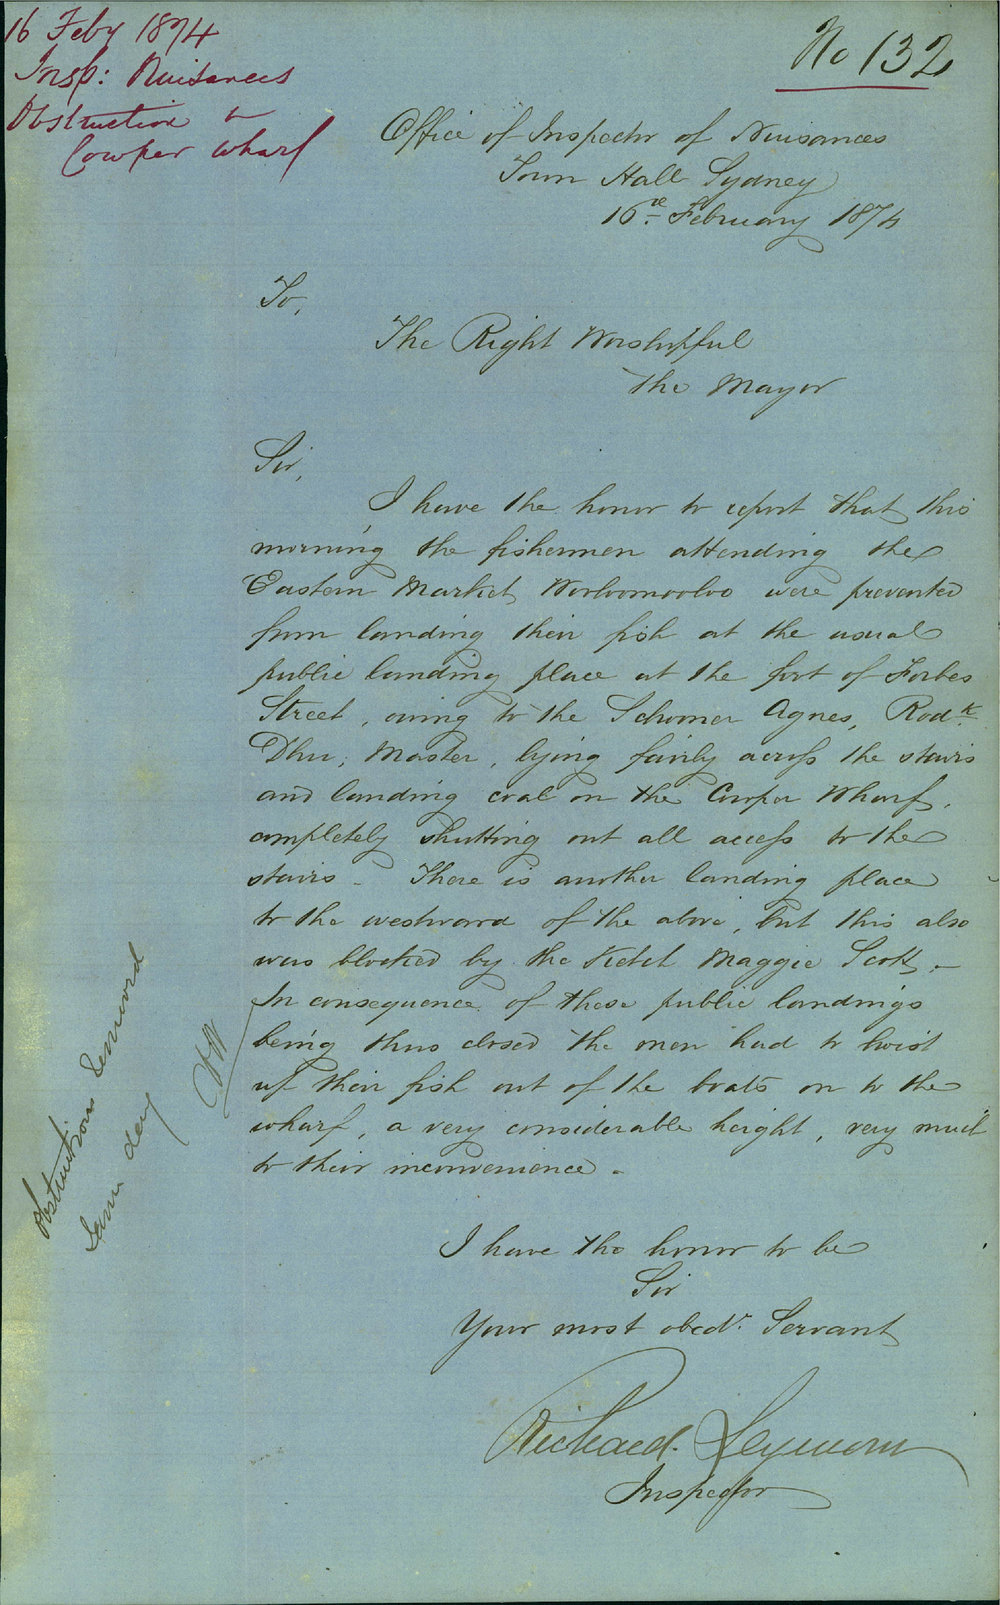 16 Feby 1874
Insp: Nuisances
Obstruction to
Cowper Wharf
No 132
Office of Inspector of Nuisances
Town Hall Sydney
16th February 1874
To,
The Right Worshipful
The Mayor
Sir,
I have the honor to report that this
morning the fishermen attending the
Eastern Market, Woolloomooloo were prevented
from landing their fish at the usual
public landing place at the foot of Forbes
Street, owing to the Schooner Agnes, Rodk
Dhu, Master, lying fairly across the stairs
and landing coal on the Cowper Wharf,
completely shutting out all access to the
stairs - There is another landing place
to the westward of the above, but this also
was blocked by the Ketch Maggie Scott -
In consequence of these public landings
being thus closed the men had to hoist
up their fish out of the boats on to the
wharf, a very considerable height, very much
to their inconvenience -
I have the honor to be
Sir
Your most obedt Servant
Richard Seymour
Inspector
Obstructions removed
same day